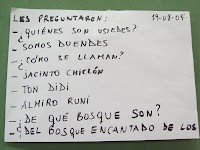 LES PREGUNTARON: 19-08-04
- ¿QUIÉNES SON USTEDES?
- SOMOS DUENDES
- ¿CÓMO SE LLAMAN?
- JACINTO CHICLÓN
- TON DIDI
- ALMIRO RUNI
- ¿DE QUÉ BOSQUE SON?
- ¿DEL BOSQUE ENCANTADO DE LOS